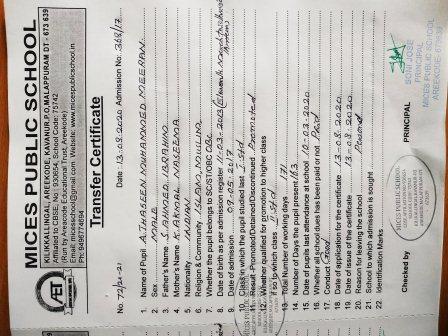 MICES PUBLIC SCHOOL
KILIKKALLINGAL, AREEKODE, KAVANUR.P.O, MALAPPURAM DT - 673 639
(Run by Areekode Educational Trust, Areekode)
Affiliated to CBSE, No : 930654, School Code: 75742
Email: micesschool@gmail.com, Website: www.micespublicschool.in
Ph: 9496774694
AET
Transfer Certificate
No. 73/20-21 Date 13.08.2020 Admission No: 368/17
1. Name of Pupil ALTHAF MUHAMMED MEERAN
2. Sex MALE
3. Father's Name S. AHMED IBRAHIM
4. Mother's Name FARYAL NASEEMA
5. Nationality INDIAN
6. Religion & Community ISLAM, MUSLIM
7. Whether the pupil belongs to SC/ST/OBC OBC
8. Date of birth as per admission register 11-03-2013
9. Date of admission 09-05-2017
10. Class in which the pupil studied last I Std
11. Result: Promoted
12. Whether qualified for promotion to higher class
if so to which class II Std
13. Total Number of working days 171
14. Number of Days the pupil present 163
15. Date of pupils last attendance at school 10-03-2020
16. Whether all school dues has been paid or not Paid
17. Conduct Good
18. Date of application for certificate 13-08-2020
19. Date of issue of the certificate 13-08-2020
20. Reason for leaving the school Personal
21. School to which admission is sought
22. Identification Marks
Checked by PRINCIPAL
SONI JOSE
PRINCIPAL
MICES PUBLIC SCHOOL